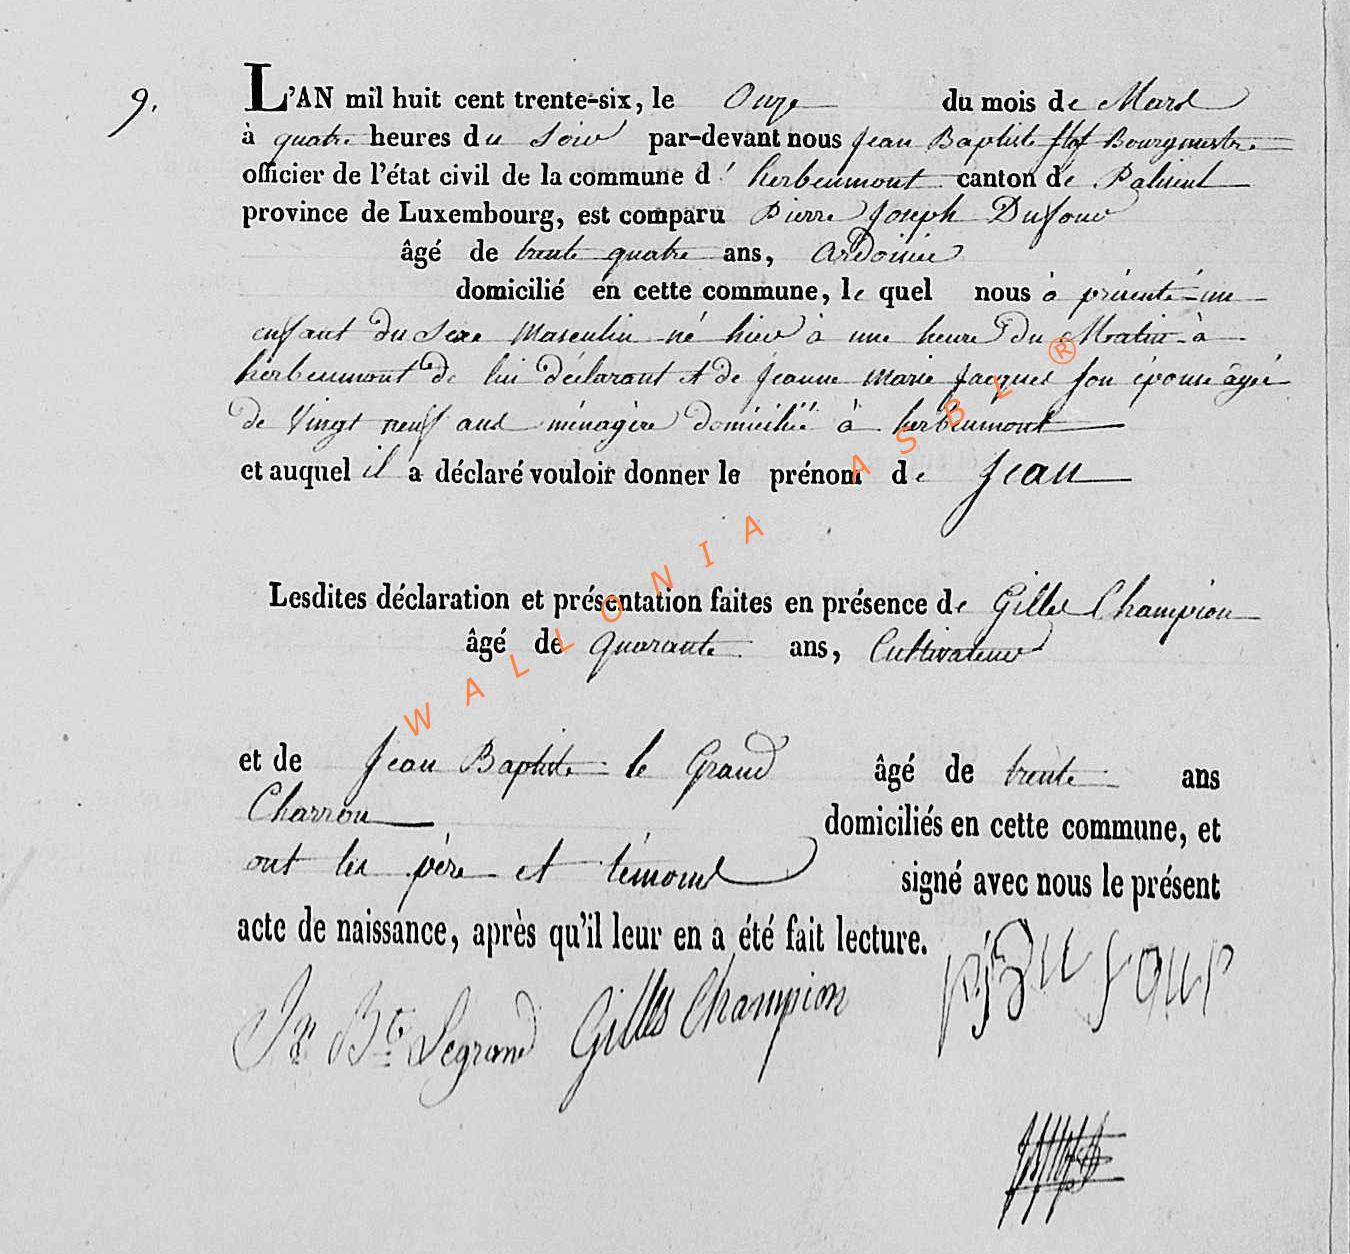 9.
L'AN mil huit cent trente-six, le Onze du mois de Mars
à quatre heures du Soir par-devant nous Jean Baptiste Bourgmestre
officier de l'état civil de la commune d' herbeumont canton de Paliseul
province de Luxembourg, est comparu Pierre Joseph Dufour
âgé de trente quatre ans, Ardoisier
domicilié en cette commune, le quel nous a présenté un
enfant du Sexe Masculin né hier à une heure du Matin à
herbeumont de lui déclarant et de Jeanne Marie Jacques Son épouse âgée
de Vingt neuf ans ménagère domicilié à herbeumont
et auquel il a déclaré vouloir donner le prénom de Jean
Lesdites déclaration et présentation faites en présence de Gilles Champion
âgé de quarante ans, Cultivateur
et de Jean Baptiste le Grand âgé de trente ans
Charron domiciliés en cette commune, et
ont les père et témoins signé avec nous le présent
acte de naissance, après qu'il leur en a été fait lecture.
Jn Bte Legrand Gilles Champion pj Dufour
WALLONIA ASBL ®